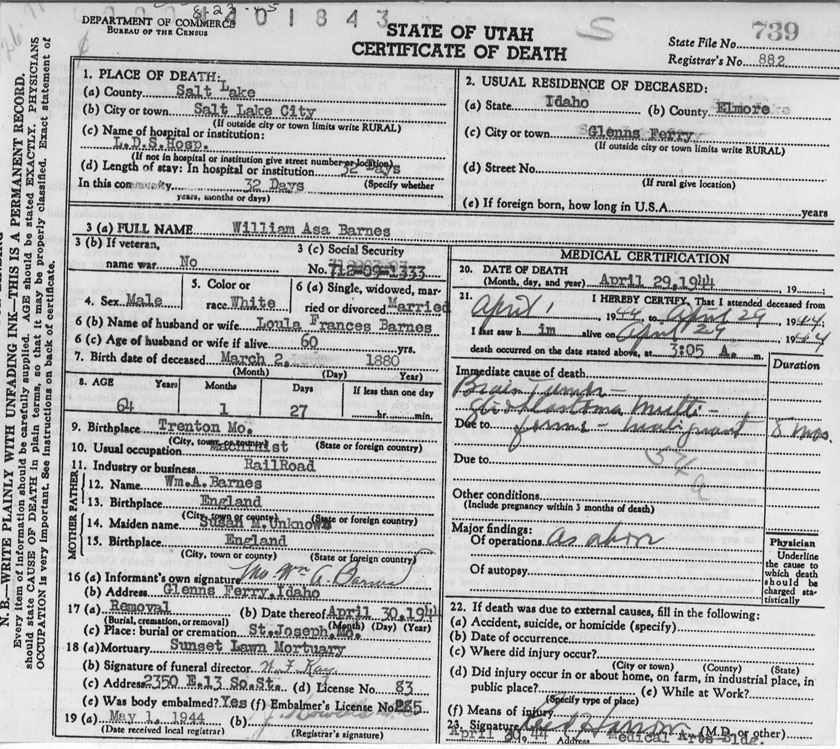 DEPARTMENT OF COMMERCE
BUREAU OF THE CENSUS
STATE OF UTAH
CERTIFICATE OF DEATH
S
State File No. 739
Registrar's No. 882
N. B.—WRITE PLAINLY WITH UNFADING INK—THIS IS A PERMANENT RECORD.
Every item of information should be carefully supplied. AGE should be stated EXACTLY. PHYSICIANS
should state CAUSE OF DEATH in plain terms, so that it may be properly classified. Exact statement of
OCCUPATION is very important. See instructions on back of certificate.
1. PLACE OF DEATH:
(a) County Salt Lake
(b) City or town Salt Lake City
(If outside city or town limits write RURAL)
(c) Name of hospital or institution:
L.D.S.Hosp.
(If not in hospital or institution give street number or location)
(d) Length of stay: In hospital or institution 32 Days
In this community 32 Days (Specify whether
years, months or days)
2. USUAL RESIDENCE OF DECEASED:
(a) State Idaho (b) County Elmore
(c) City or town Glenns Ferry
(If outside city or town limits write RURAL)
(d) Street No.
(If rural give location)
(e) If foreign born, how long in U.S.A. years
3 (a) FULL NAME William Asa Barnes
3 (b) If veteran,
name war No
3 (c) Social Security
No. 712-09-1333
4. Sex Male
5. Color or
race White
6 (a) Single, widowed, mar-
ried or divorced Married
6 (b) Name of husband or wife Loula Frances Barnes
6 (c) Age of husband or wife if alive 60 yrs.
7. Birth date of deceased March 2, 1880
(Month) (Day) Year)
8. AGE Years Months Days If less than one day
64 1 27 hr. min.
9. Birthplace Trenton Mo.
(City, town, or county) (State or foreign country)
10. Usual occupation Machinist
11. Industry or business RailRoad
FATHER
12. Name Wm.A.Barnes
13. Birthplace England
(City, town or county) (State or foreign country)
MOTHER
14. Maiden name Susan N.Unknown
15. Birthplace England
(City, town or county) (State or foreign country)
16 (a) Informant's own signature Mrs. Wm A. Barnes
(b) Address Glenns Ferry,Idaho
17 (a) Removal (b) Date thereof April 30,1944
(Burial, cremation, or removal) (Month) (Day) (Year)
(c) Place: burial or cremation St.Joseph,Mo.
18 (a) Mortuary Sunset Lawn Mortuary
(b) Signature of funeral director W. F. Kay
(c) Address 2350 E.13 So.St. (d) License No. 83
(e) Was body embalmed? Yes (f) Embalmer's License No.
19 (a) May 1, 1944 (b)
(Date received local registrar) (Registrar's signature)
MEDICAL CERTIFICATION
20. DATE OF DEATH
(Month, day, and year) April 29,1944 19
21. I HEREBY CERTIFY, That I attended deceased from
April 1 1944 to April 29 1944
I last saw him alive on April 29 1944
death occurred on the date stated above, at 3:05 A. m.
Immediate cause of death Duration
Brain tumor —
glioblastoma multi-
Due to forme — malignant 8 mos.
Due to
Other conditions
(Include pregnancy within 3 months of death)
Major findings:
Of operations as above
Of autopsy
Physician
Underline
the cause to
which death
should be
charged sta-
tistically
22. If death was due to external causes, fill in the following:
(a) Accident, suicide, or homicide (specify)
(b) Date of occurrence
(c) Where did injury occur?
(City or town) (County) (State)
(d) Did injury occur in or about home, on farm, in industrial place, in
public place? (e) While at Work?
(Specify type of place)
(f) Means of injury
23. Signature (M.D. or other)
Address Medical Arts Bldg